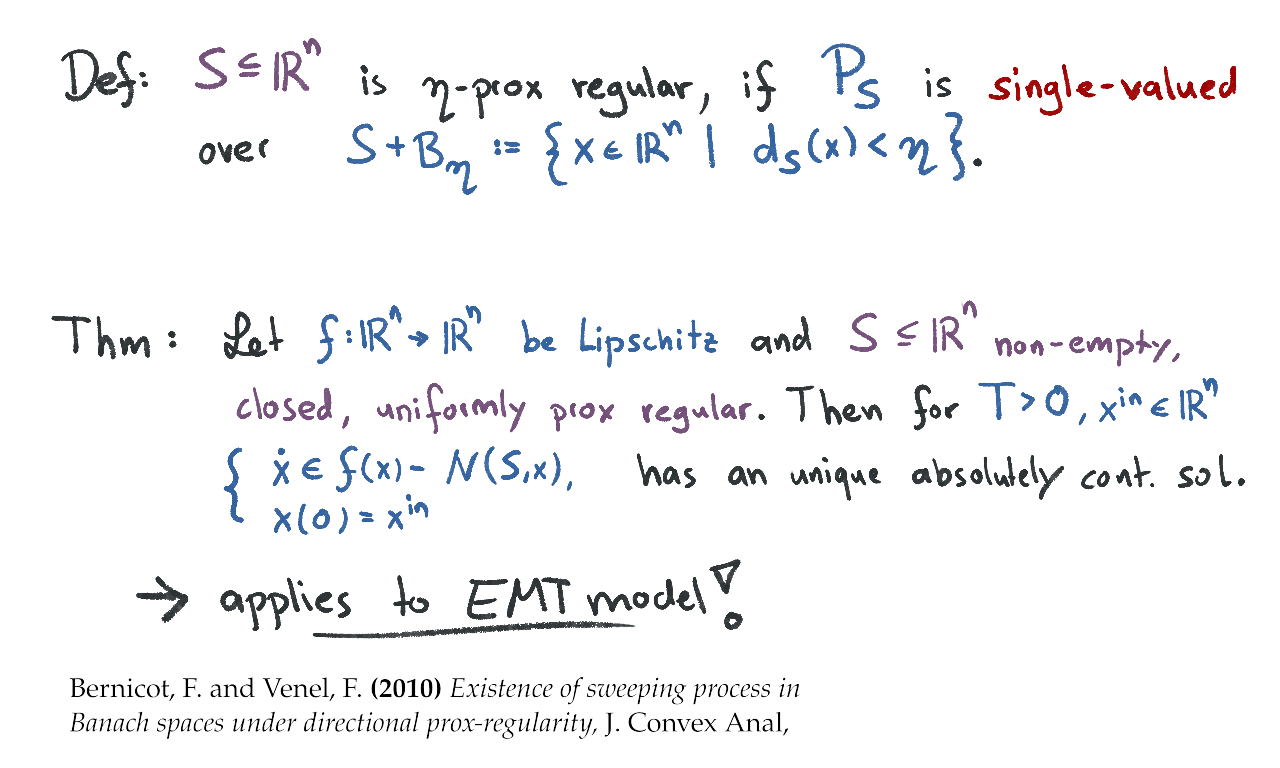 Def: S ⊆ ℝⁿ is η-prox regular, if P_S is single-valued
over S + B_η := { x ∈ ℝⁿ | d_S(x) < η }.
Thm: Let f: ℝⁿ → ℝⁿ be Lipschitz and S ⊆ ℝⁿ non-empty,
closed, uniformly prox regular. Then for T > 0, xⁱⁿ ∈ ℝⁿ
{ ẋ ∈ f(x) - N(S,x), has an unique absolutely cont. sol.
x(0) = xⁱⁿ
→ applies to EMT model!
Bernicot, F. and Venel, F. (2010) Existence of sweeping process in
Banach spaces under directional prox-regularity, J. Convex Anal,